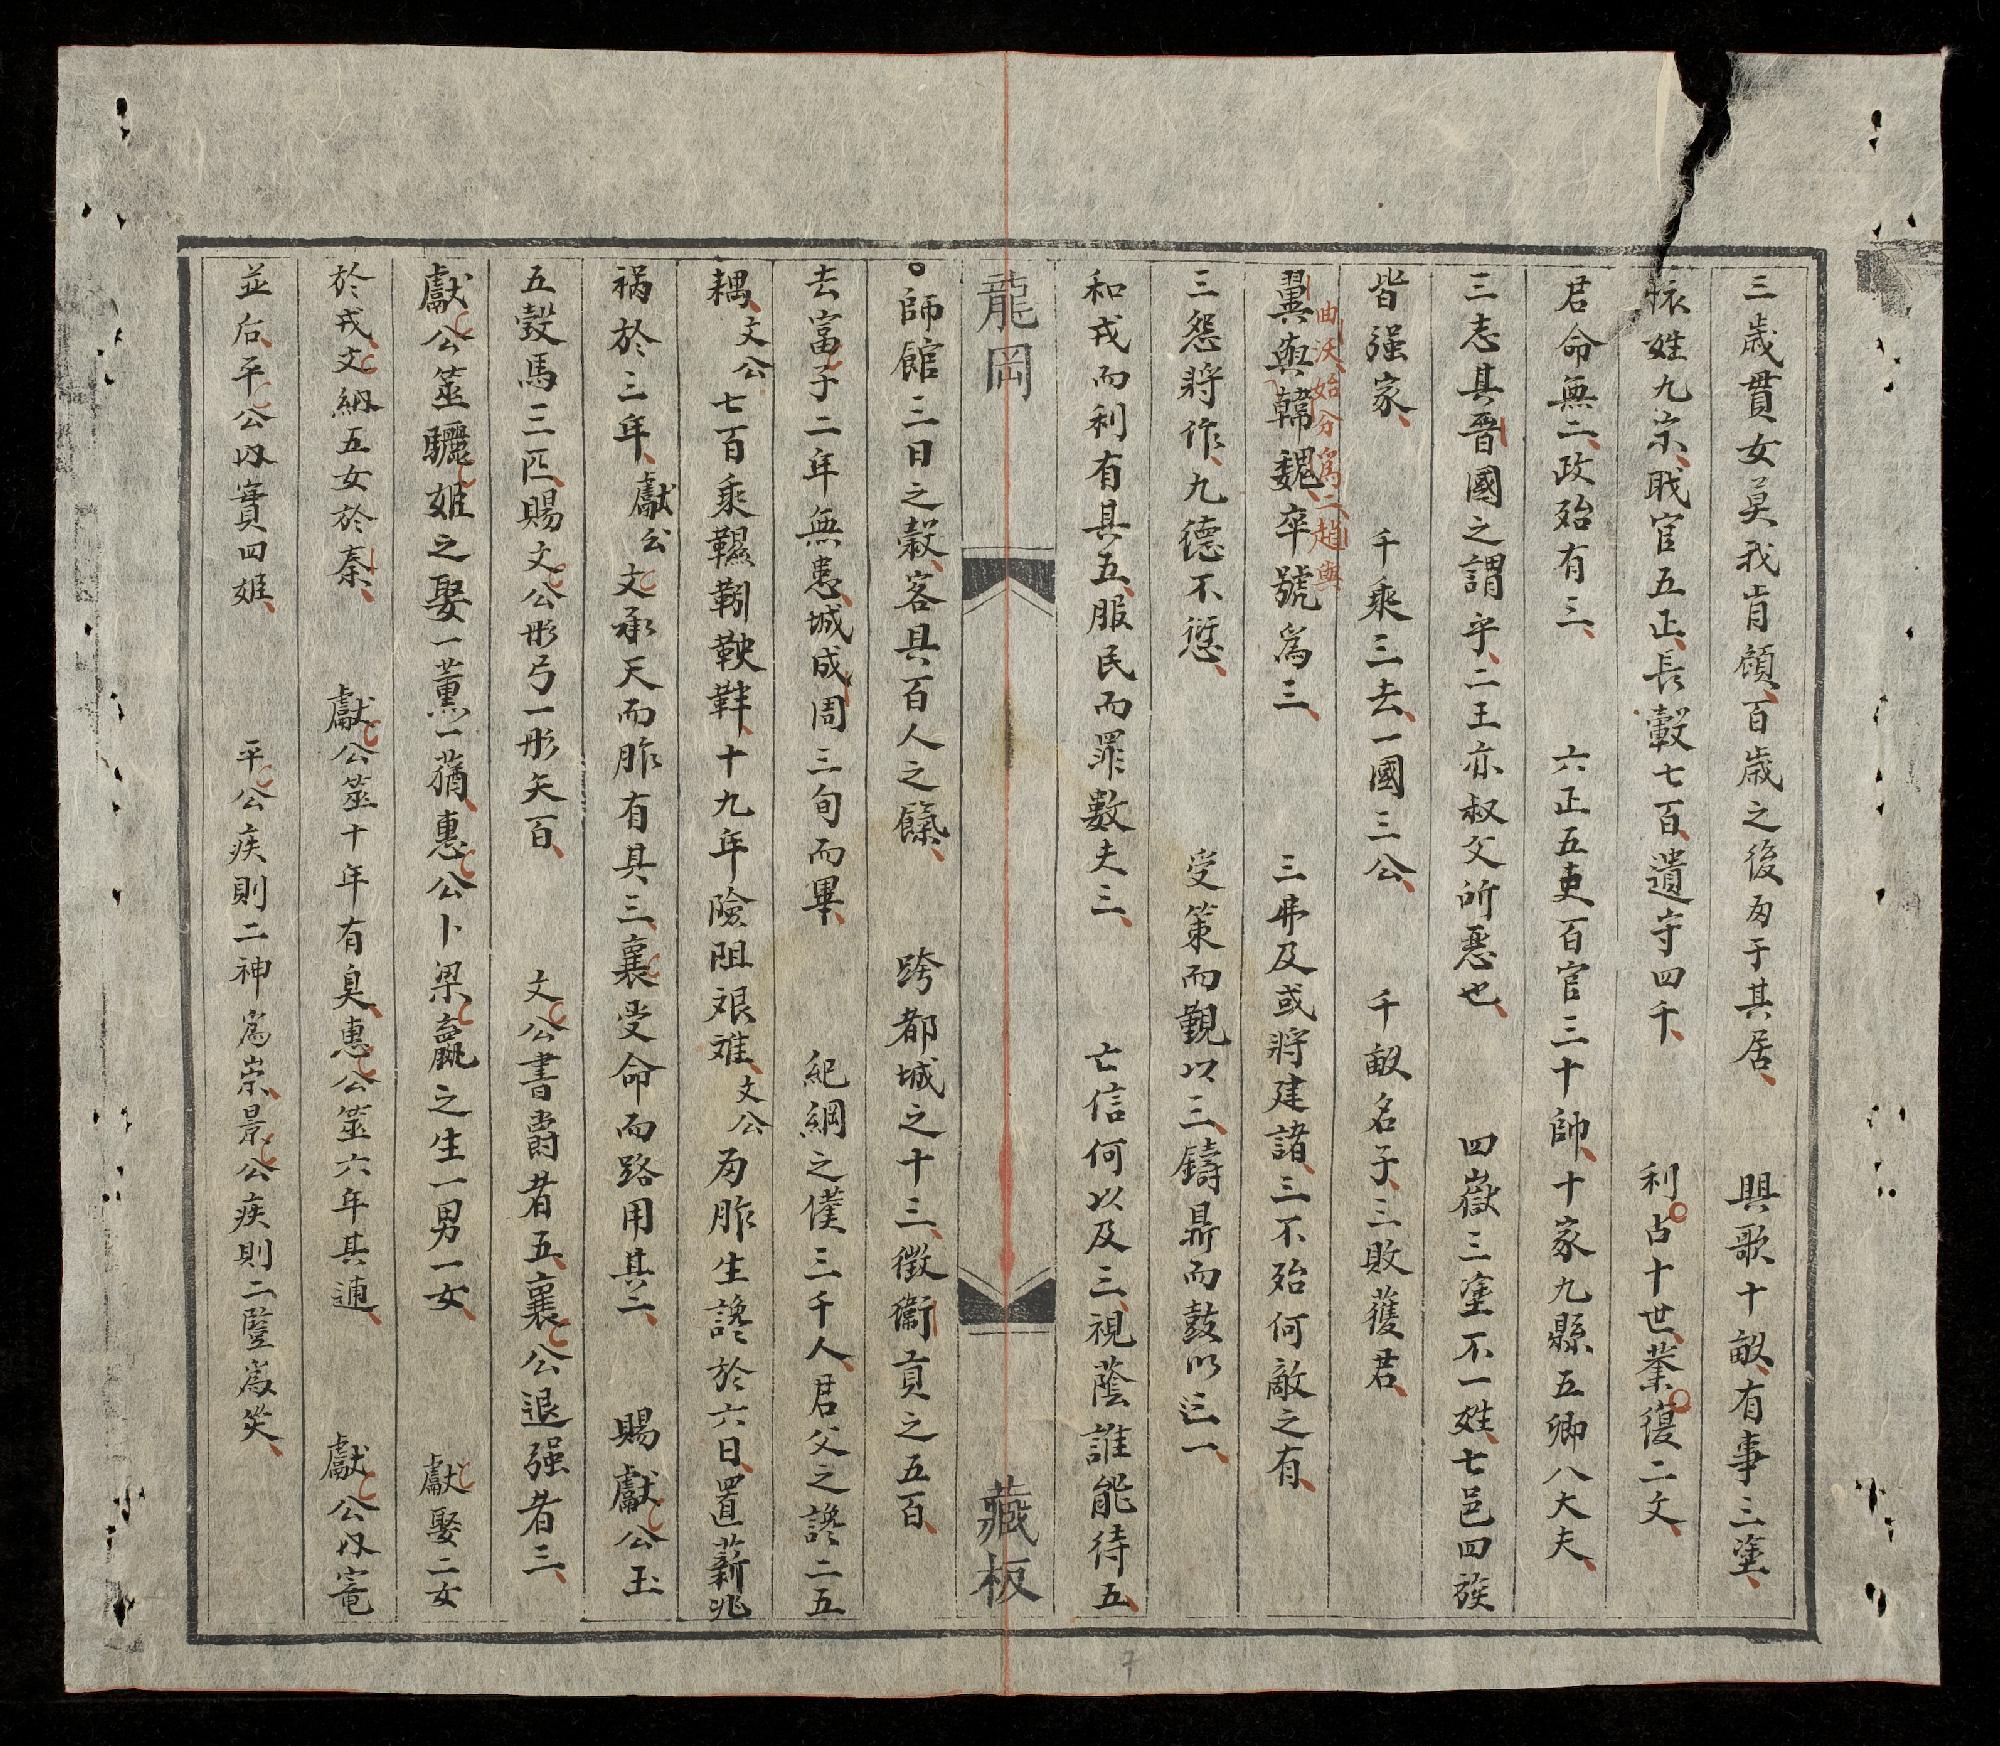 三歲貫女莫我肯顧百歲之後㱕于其居　興歌十畝有事三塗
懷姓九宗職官五正長轂七百遺守四千　利占十世筮復二文
君命無二政殆有三　六正五吏百官三十帥十家九縣五卿八大夫
三志其晉國之謂乎二王亦叔父所惡也　四嶽三塗不一姓七邑四族
皆强家　千乘三去一國三公　千畝名子三敗獲君
曲沃始分爲二趙與
翼與韓魏卒號爲三　三弗及或將建諸三不殆何敵之有
三怨將作九德不愆　受策而覲以三鑄鼎而鼓以一
和戎而利有其五服民而罪數夫三　亡信何以及三視蔭誰能待五
龍岡　藏板
○師館三日之穀客具百人之餼　跨都城之十三徵衞貢之五百
去富子二年無患城成周三旬而畢　紀綱之僕三千人君父之讒二五
耦文公七百乘韅靷鞅靽十九年險阻艰难文公㱕胙生讒於六日置薪兆
祸於三年獻公文承天而胙有其三襄受命而路用其二　賜獻公玉
五瑴馬三匹賜文公彤弓一彤矢百　文公書爵者五襄公退强者三
獻公筮驪姬之娶一薰一蕕惠公卜梁嬴之生一男一女　獻娶二女
於戎文納五女於秦　獻公筮十年有臭惠公筮六年其逋　獻公內寵
並后平公內實四姬　平公疾則二神爲祟景公疾則二豎爲災